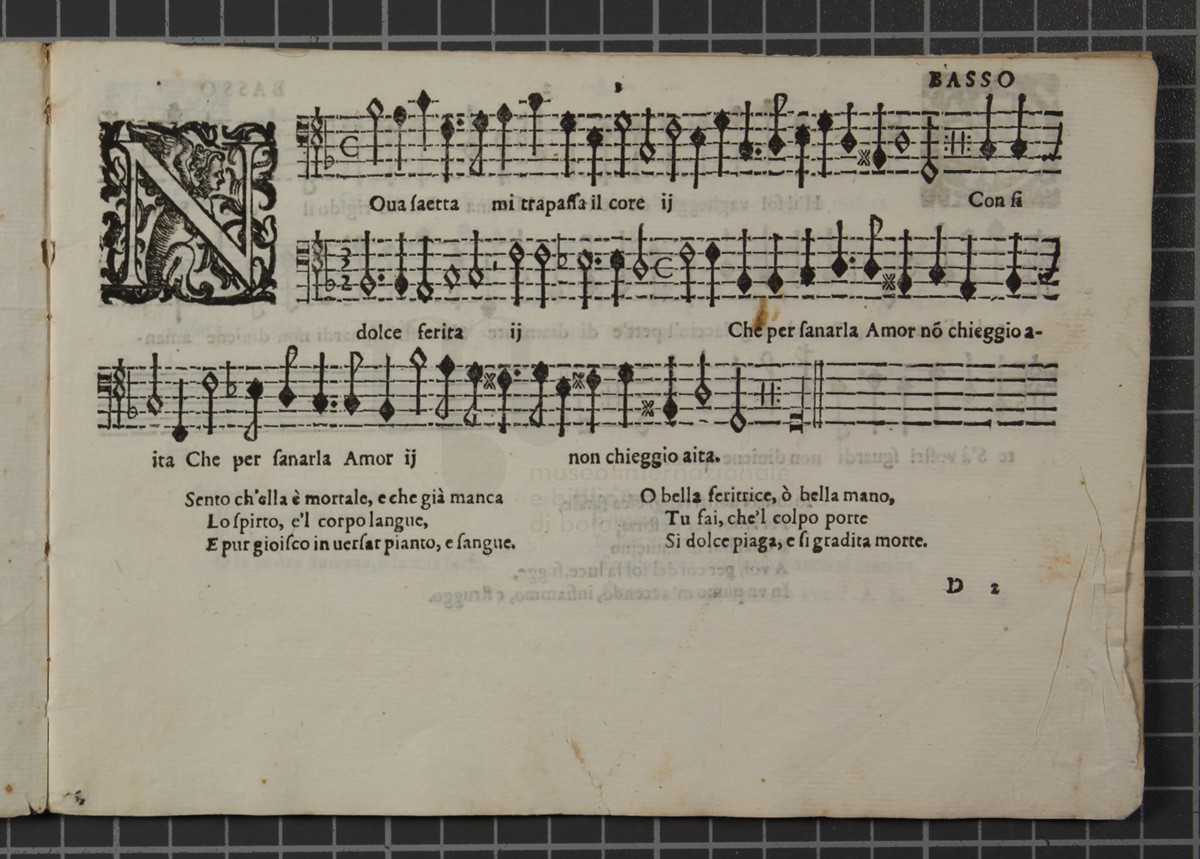 3
BASSO
NOua saetta mi trapassa il core ij Con si
dolce ferita ij Che per sanarla Amor nō chieggio a-
ita Che per sanarla Amor ij non chieggio aita.
Sento ch'ella è mortale, e che già manca
Lo spirto, e'l corpo langue,
E pur gioisco in uersar pianto, e sangue.
O bella feritrice, ò bella mano,
Tu fai, che'l colpo porte
Si dolce piaga, e si gradita morte.
D 2